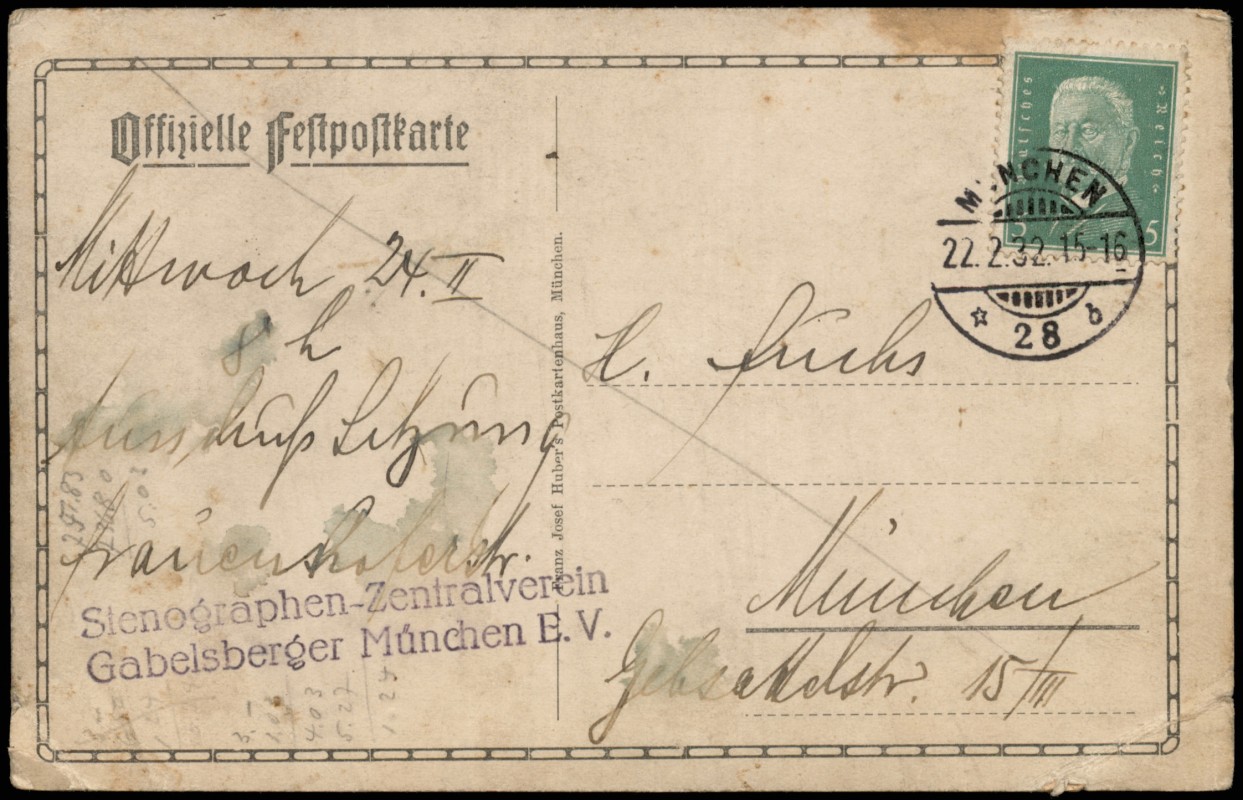 Offizielle Festpostkarte
Mittwoch 24. II
8 h
Ausschuß Sitzung
Frauenhoferstr.
Stenographen-Zentralverein
Gabelsberger München E.V.
Franz Josef Huber's Postkartenhaus, München.
Deutsches Reich
5 5
MÜNCHEN
22.2.32. 15-16
28 b
H. Fuchs
München
Gebsattelstr. 15/III
3.-
4.03
5.27
1.24
5.02